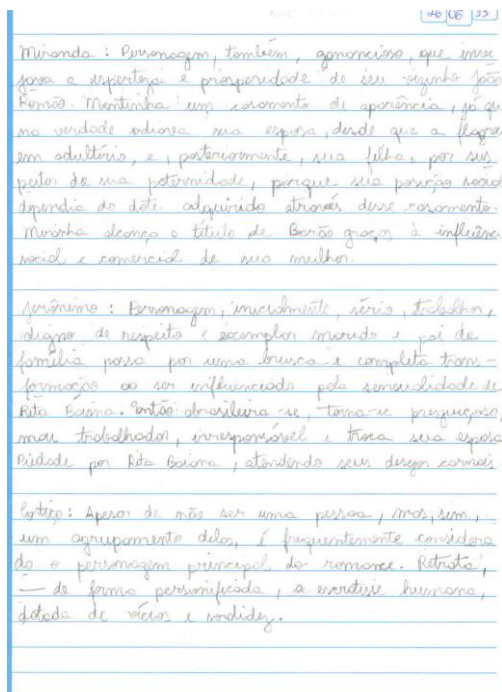 26 06 33
Miranda : Personagem, também, ganancioso, que inve
java a esperteza e prosperidade de seu vizinho João
Romão. Mantinha um casamento de aparência, já qu
na verdade odiava sua esposa, desde que a flagrou
em adultério, e, posteriormente, sua filha, por sus
peitar de sua paternidade, porque sua posição social
dependia do dote adquirido através desse casamento.
Miranha alcança o título de Barão graças à influênc
social e comercial de sua mulher.
Jerônimo : Personagem, inicialmente, sério, trabalhor,
digno de respeito e exemplar marido e pai de
família passa por uma brusca e completa trans-
formação ao ser influenciado pela sensualidade de
Rita Baiana. Então abrasileira-se, torna-se preguiçoso,
mau trabalhador, irresponsável e troca sua esposa
Piedade por Rita Baiana, atendendo seus desejos carnais.
Cortiço: Apesar de não ser uma pessoa, mas, sim,
um agrupamento delas, é frequentemente considera
do o personagem principal do romance. Retrata,
— de forma personificada, a humana,
dotada de vícios e sordidez.